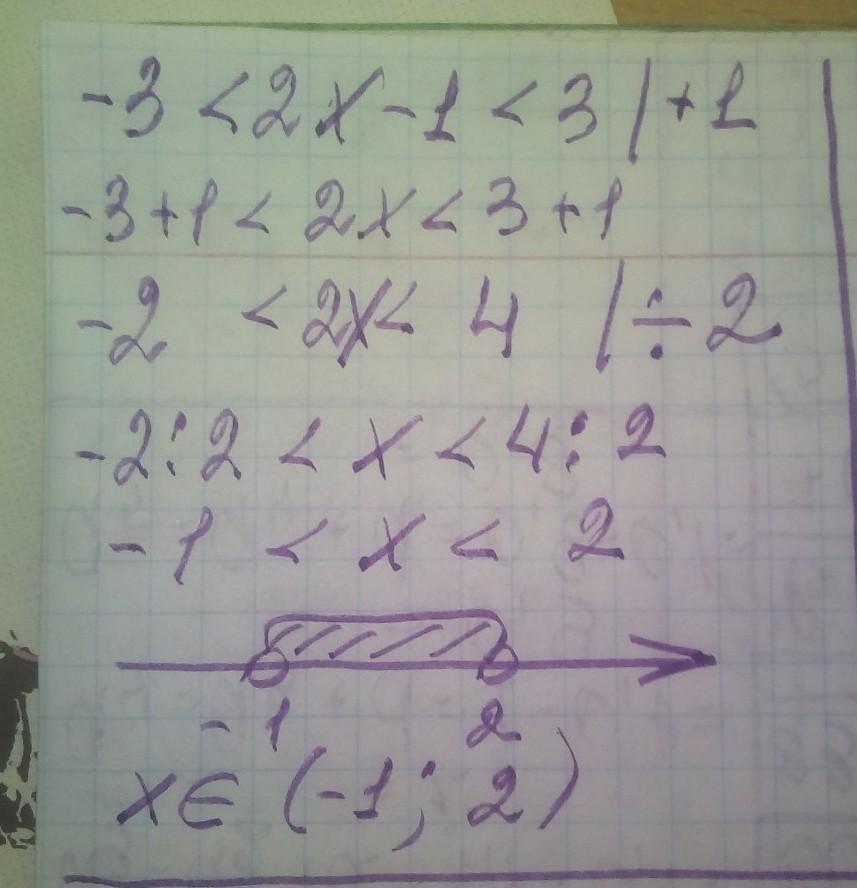 -3 < 2x - 1 < 3 | +1
-3+1 < 2x < 3+1
-2 < 2x < 4 | ÷ 2
-2:2 < x < 4:2
-1 < x < 2
-1 2
x ∈ (-1; 2)